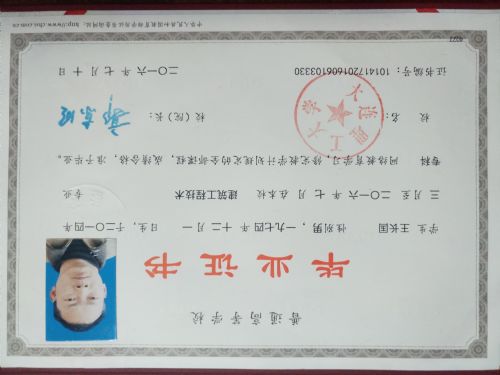 普通高等学校
毕业证书
学生 王长国 性别男，一九七四年十二月一日生，于二〇一四年
三月至二〇一六年七月在本校 建筑工程技术 专业
网络教育学习，修完专科教学计划规定的全部课程，成绩合格，准予毕业。
校 名：
大连理工大学
校（院）长：
证书编号：101417201606103330
二〇一六年七月十日
中华人民共和国教育部学历证书查询网址：http://www.chsi.com.cn